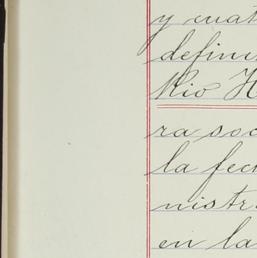 y cuat
defini
Rio H
ra soc
la fech
nistr
en la